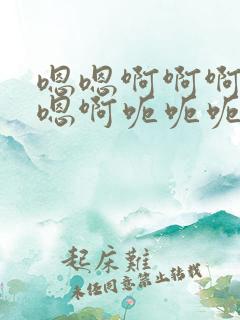 嗯嗯啊啊啊
嗯啊呃呃呃
起床難
未经同意禁止转载